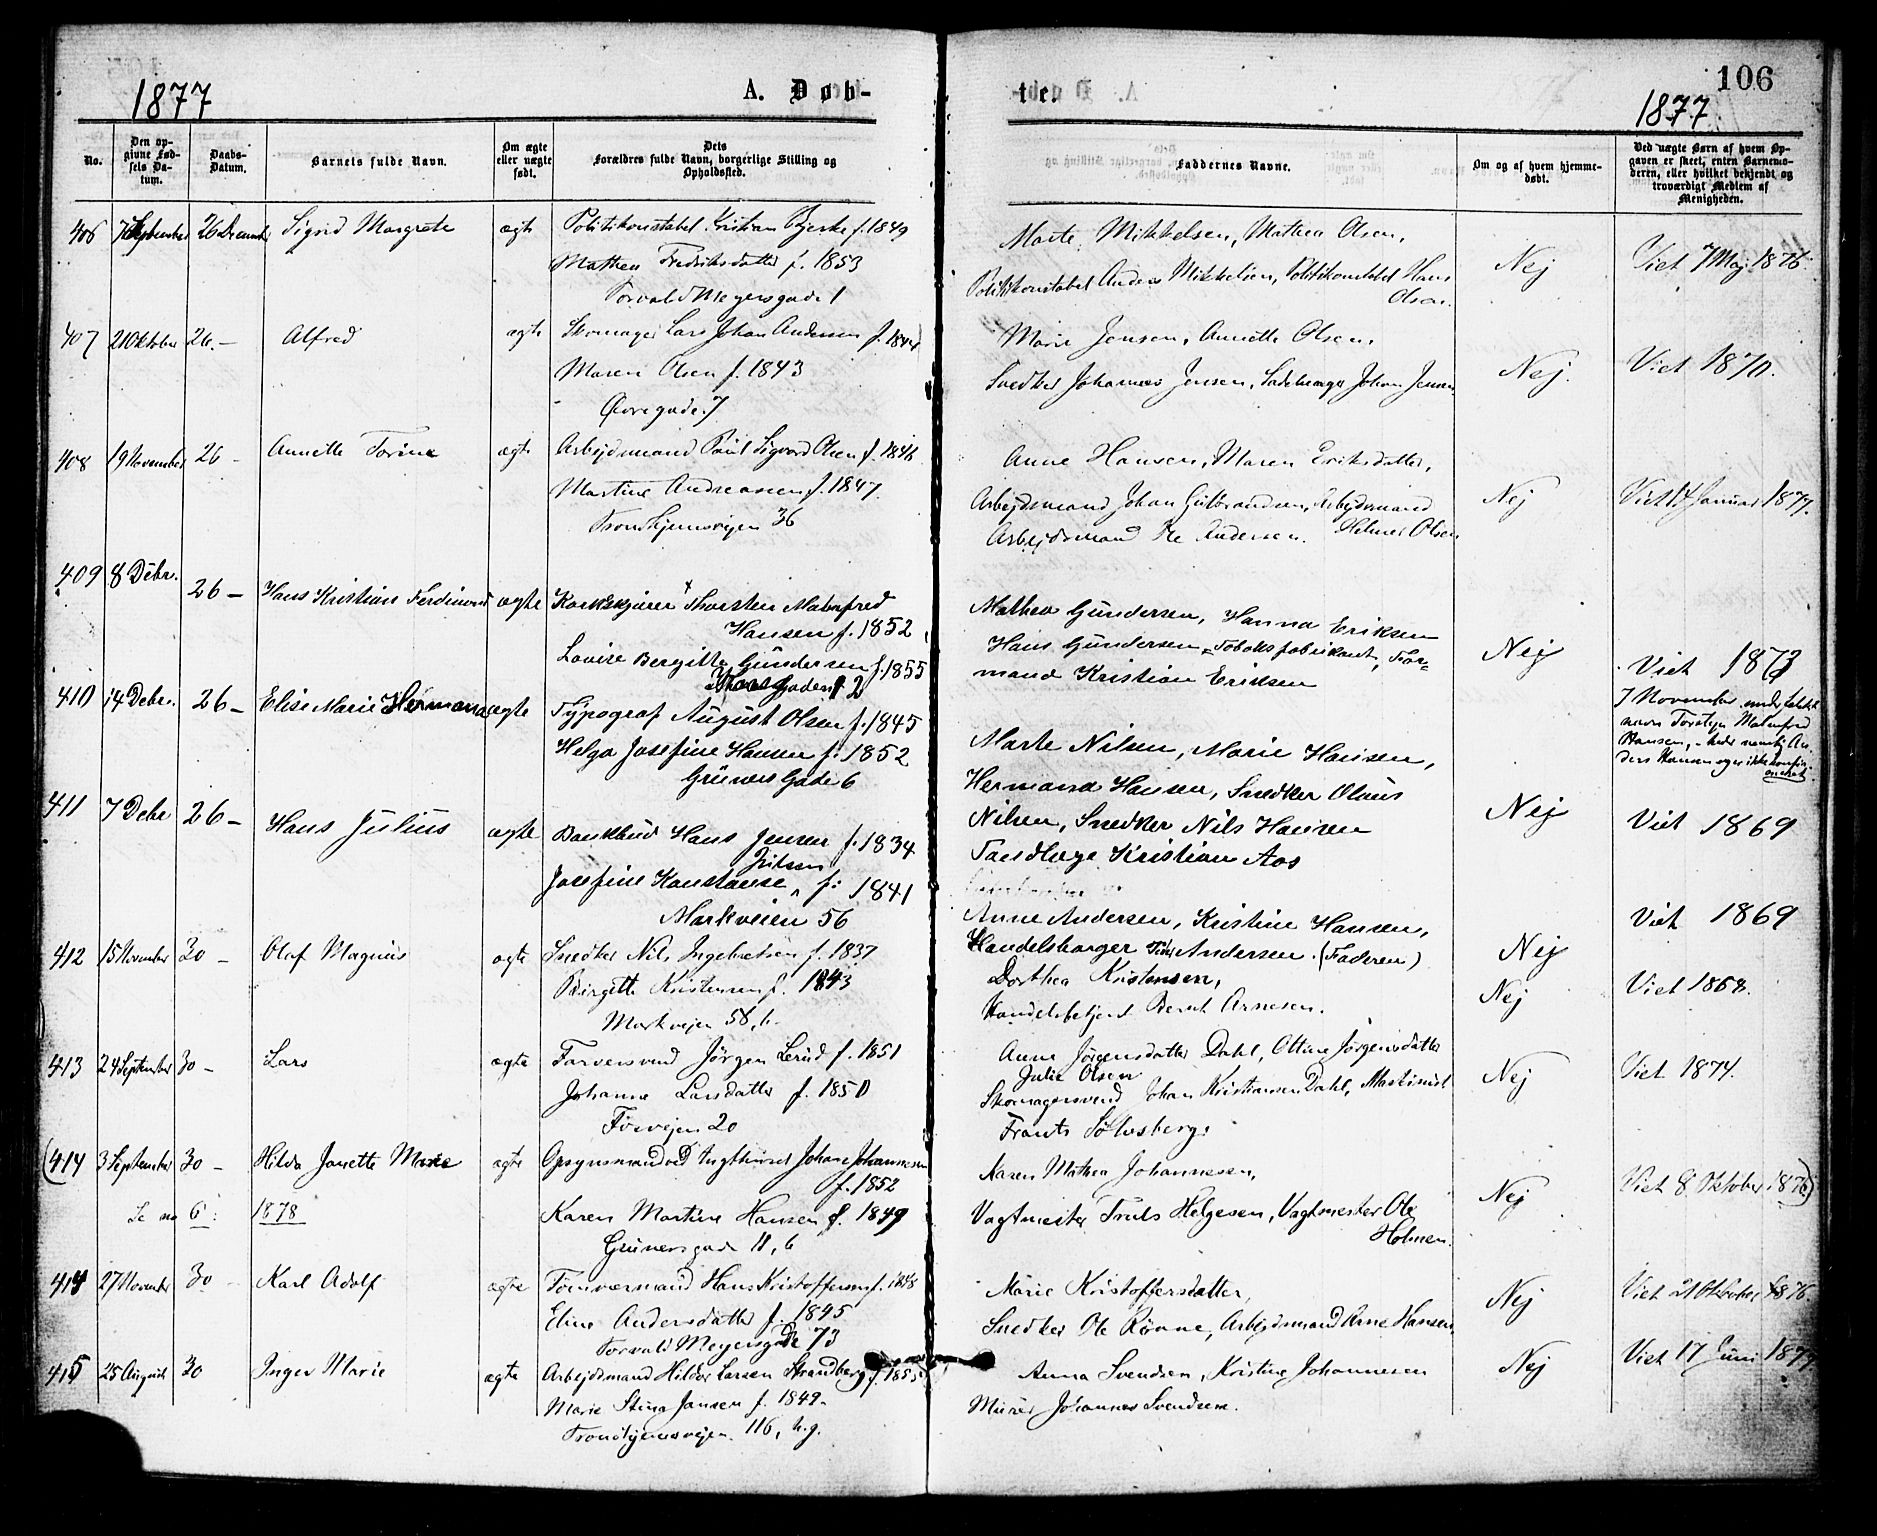 1877
A. Døb-
No.
Den op-
givne Fød-
sels Da-
tum.
Daabs-
Datum.
Barnets fulde Navn.
Om ægte
eller uægte
født.
Dets
Forældres fulde Navn, borgerlige Stilling og
Opholdsted.
406 7 September 26 December Sigrid Margrete ægte Politikonstabel Kristian Bjerke f. 1849
Mathea Fredriksdatter f. 1853
Torvald Meyersgade 1
407 21 Oktober 26 - Alfred ægte Skomager Lars Johan Andersen f. 1844
Maren Olsen f. 1843
Øvregade 7
408 19 November 26 - Annette Torine ægte Arbejdsmand Paul Sigvard Olsen f. 1846
Martine Andreasen f. 1847.
Trondhjemsvejen 36
409 8 Debr. 26 - Hans Kristian Ferdinand ægte Korkskjærer Thorsten Malmfred
Hansen f. 1852
Lovise Bergitte Gundersen f. 1855
410 14 Debr. 26 - Elise Marie Hermana ægte Typograf August Olsen f. 1845
Helga Josefine Hansen f. 1852
Grüners Gade 6
411 7 Debr 26 - Hans Julius ægte Bankbud Hans Jensen f. 1834
Josefine Konstanse f: 1841
Markveien 56
412 15 November 30 - Olaf Magnus ægte Snedker Nils Ingebretsen f. 1837
Birgitte Kristensen f. 1843
Markvejen 58, b.
413 24 September 30 - Lars ægte Farversvend Jörgen Lerud f. 1851
Johanne Larsdatter f. 1850
(414 3 September 30 - Hilda Janette Marie ægte Opsynsmand ved Johan Johannesen
f. 1852
Se no 6: 1878 Karen Martine Hansen f. 1849
Grünersgade 11, b
414 27 November 30 - Karl Adolf ægte Hans Kristoffersen f. 1848
Eline Andersdatter f. 1845
Torvald Meyersgade 73
415 25 August 30 Inger Marie ægte Arbejdsmand Hildor Larsen Strandberg f. 1855
Marie Stina Jansen f. 1849.
Trondhjemsvejen 116, h.g.
te.
106
1877
Faddernes Navne.
Om og af hvem hjemme-
døbt.
Ved uægte Børn af hvem Op-
gaven er skeet, enten Barnemo-
deren, eller hvilket bekjendt og
troværdigt Medlem af
Menigheden.
Marte Mikkelsen, Mathea Olsen,
Politikonstabel Anders Mikkelsen, Politikonstabel Hans
Olsen.
Nej
Viet 7 Maj 1876.
Marie Jensen, Annette Olsen,
Snedker Johannes Jensen, Sadelmager Johan Jensen
Nej.
Viet 1870.
Anne Hansen, Maren Eriksdatter,
Arbejdsmand Johan Gulbrandsen, Arbejdsmand
Hilmer Olsen
Arbejdsmand Ole Andersen.
Nej
Viet 14 Januar 1877.
Mathea Gundersen, Hanna Eriksen
Hans Gundersen - Tobaksfabrikant, For-
mand Kristian Eriksen
Nej
Viet 1873
7 November under
navn Torstein Malmfred
Hansen, - heder nemlig An-
ders Hansen og er ikke konfir-
meret
Marte Nilsen, Marie Hansen,
Hermana Hansen, Snedker Olaus
Nilsen, Snedker Nils Hansen
Tandlæge Kristian Aas
Nej
Viet 1869
Anne Andersen, Kristine Hansen,
Handelsborger Andersen. (Faderen)
Nej
Viet 1869
Dorthea Kristensen,
Handelsbetjent Bernt Arnesen.
Nej
Viet 1868.
Anne Jörgensdatter Dahl, Ottine Jörgensdatter
Julie Olsen
Skomagersvend Johan Kristiansen Dahl,
Frants Sölvesberg.
Nej
Viet 1874.
Karen Mathea Johannesen,
Vagtmester Truls Helgesen, Vagtmester Ole
Holmen.
Nej
Viet 8 Oktober 1876)
Marie Kristoffersdatter,
Snedker Ole Rönne, Arbejdsmand Arne Hansen.
Nej
Viet 21 Oktober 1876
Anna Svendsen, Kristine Johannesen
Murer Johannes Svendsen.
Nej
Viet 17 Juni 187